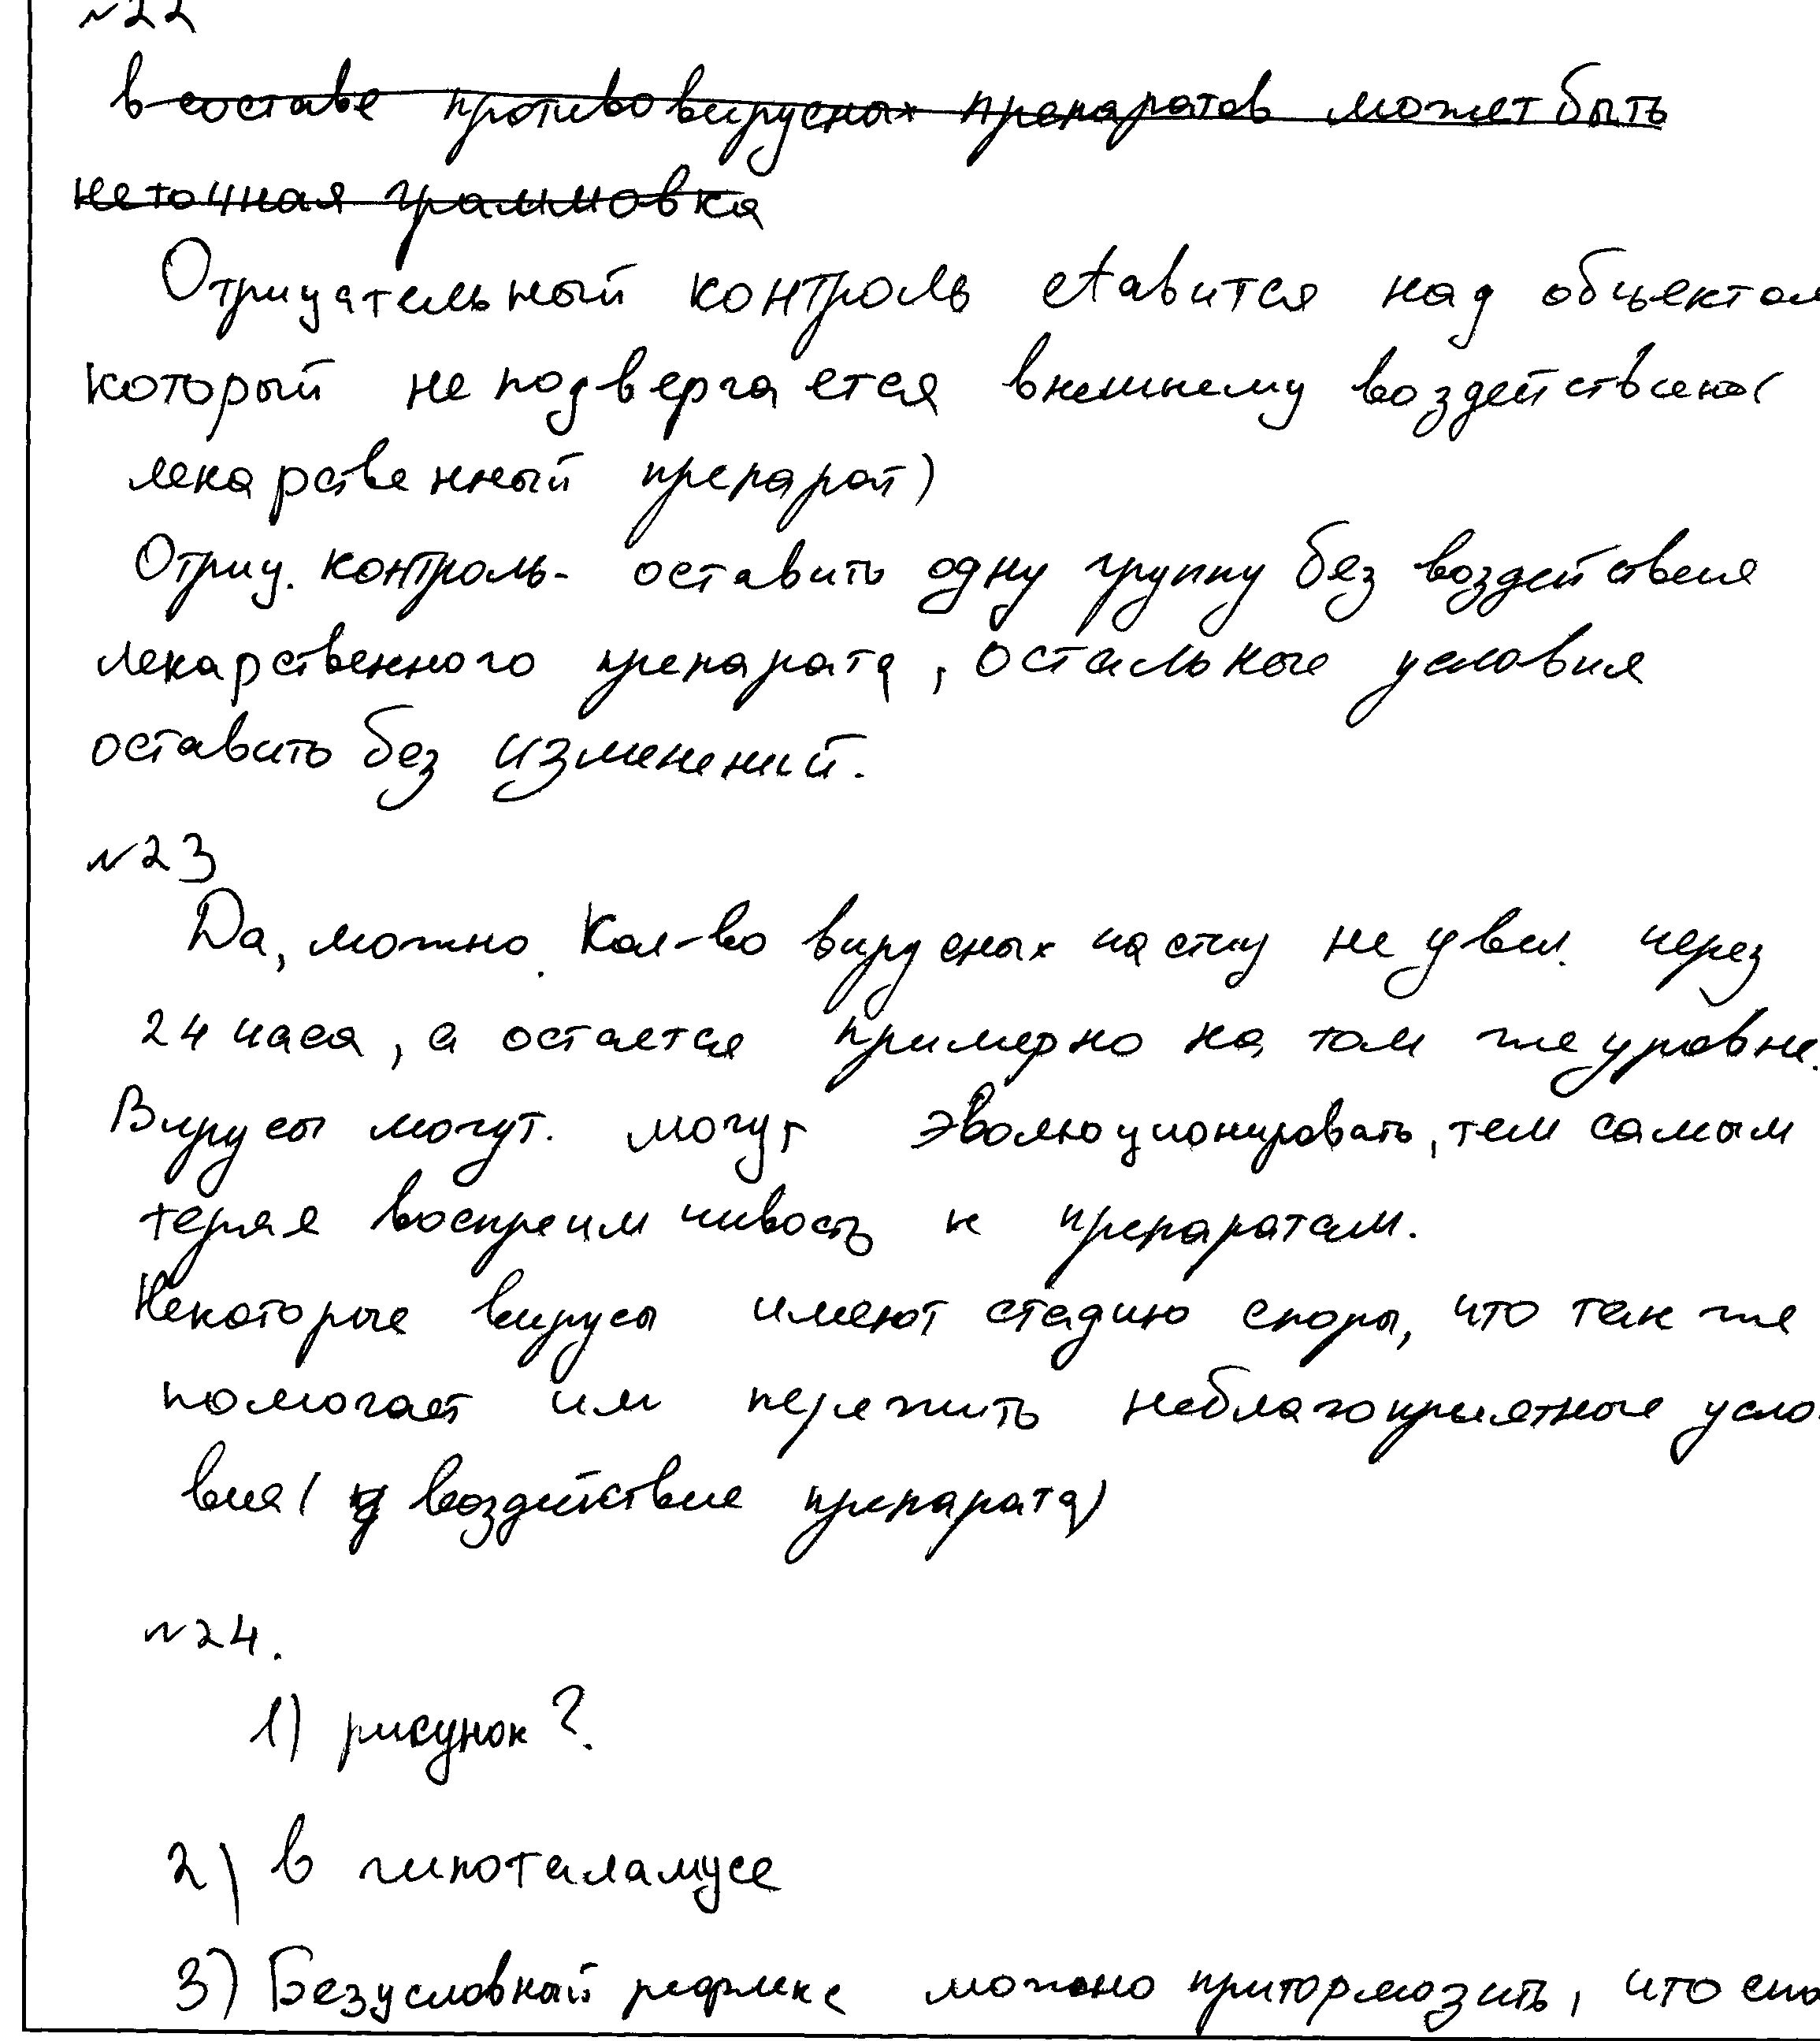 №22
в составе противовирусных препаратов может быть
неточная граммовка
Отрицательный контроль ставится над объектом
который не подвергается внешнему воздействию(
лекарственный препарат)
Отриц. контроль- оставить одну группу без воздействия
лекарственного препарата, остальные условия
оставить без изменений.
№23
Да, можно. Кол-во вирусных частиц не увел. через
24 часа, а остается примерно на том же уровне.
Вирусы могут. могут эволюционировать, тем самым
теряя восприимчивость к препаратам.
Некоторые вирусы имеют стадию споры, что так же
помогает им пережить неблагоприятные усло-
вия( воздействие препарата)
№24.
1) рисунок?
2) в гипоталамусе
3) Безусловный рефлекс можно притормозить, что спо